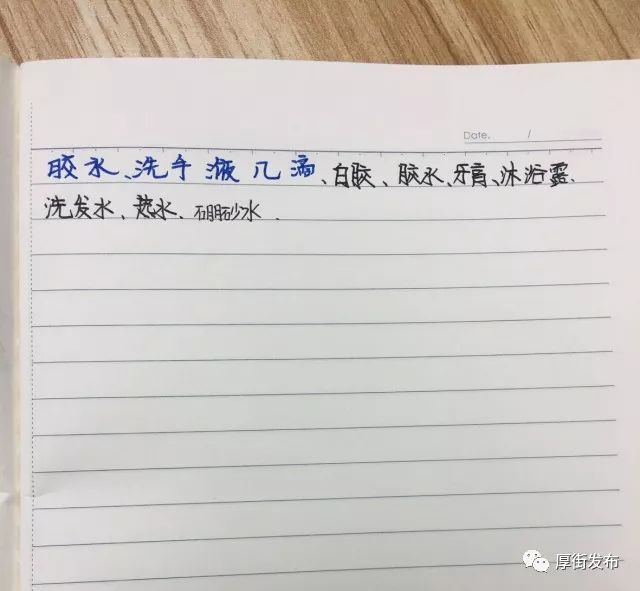 Date. /
胶水、洗手液几滴、白胶、胶水、牙膏、沐浴露、
洗发水、热水、硼砂水.
厚街发布